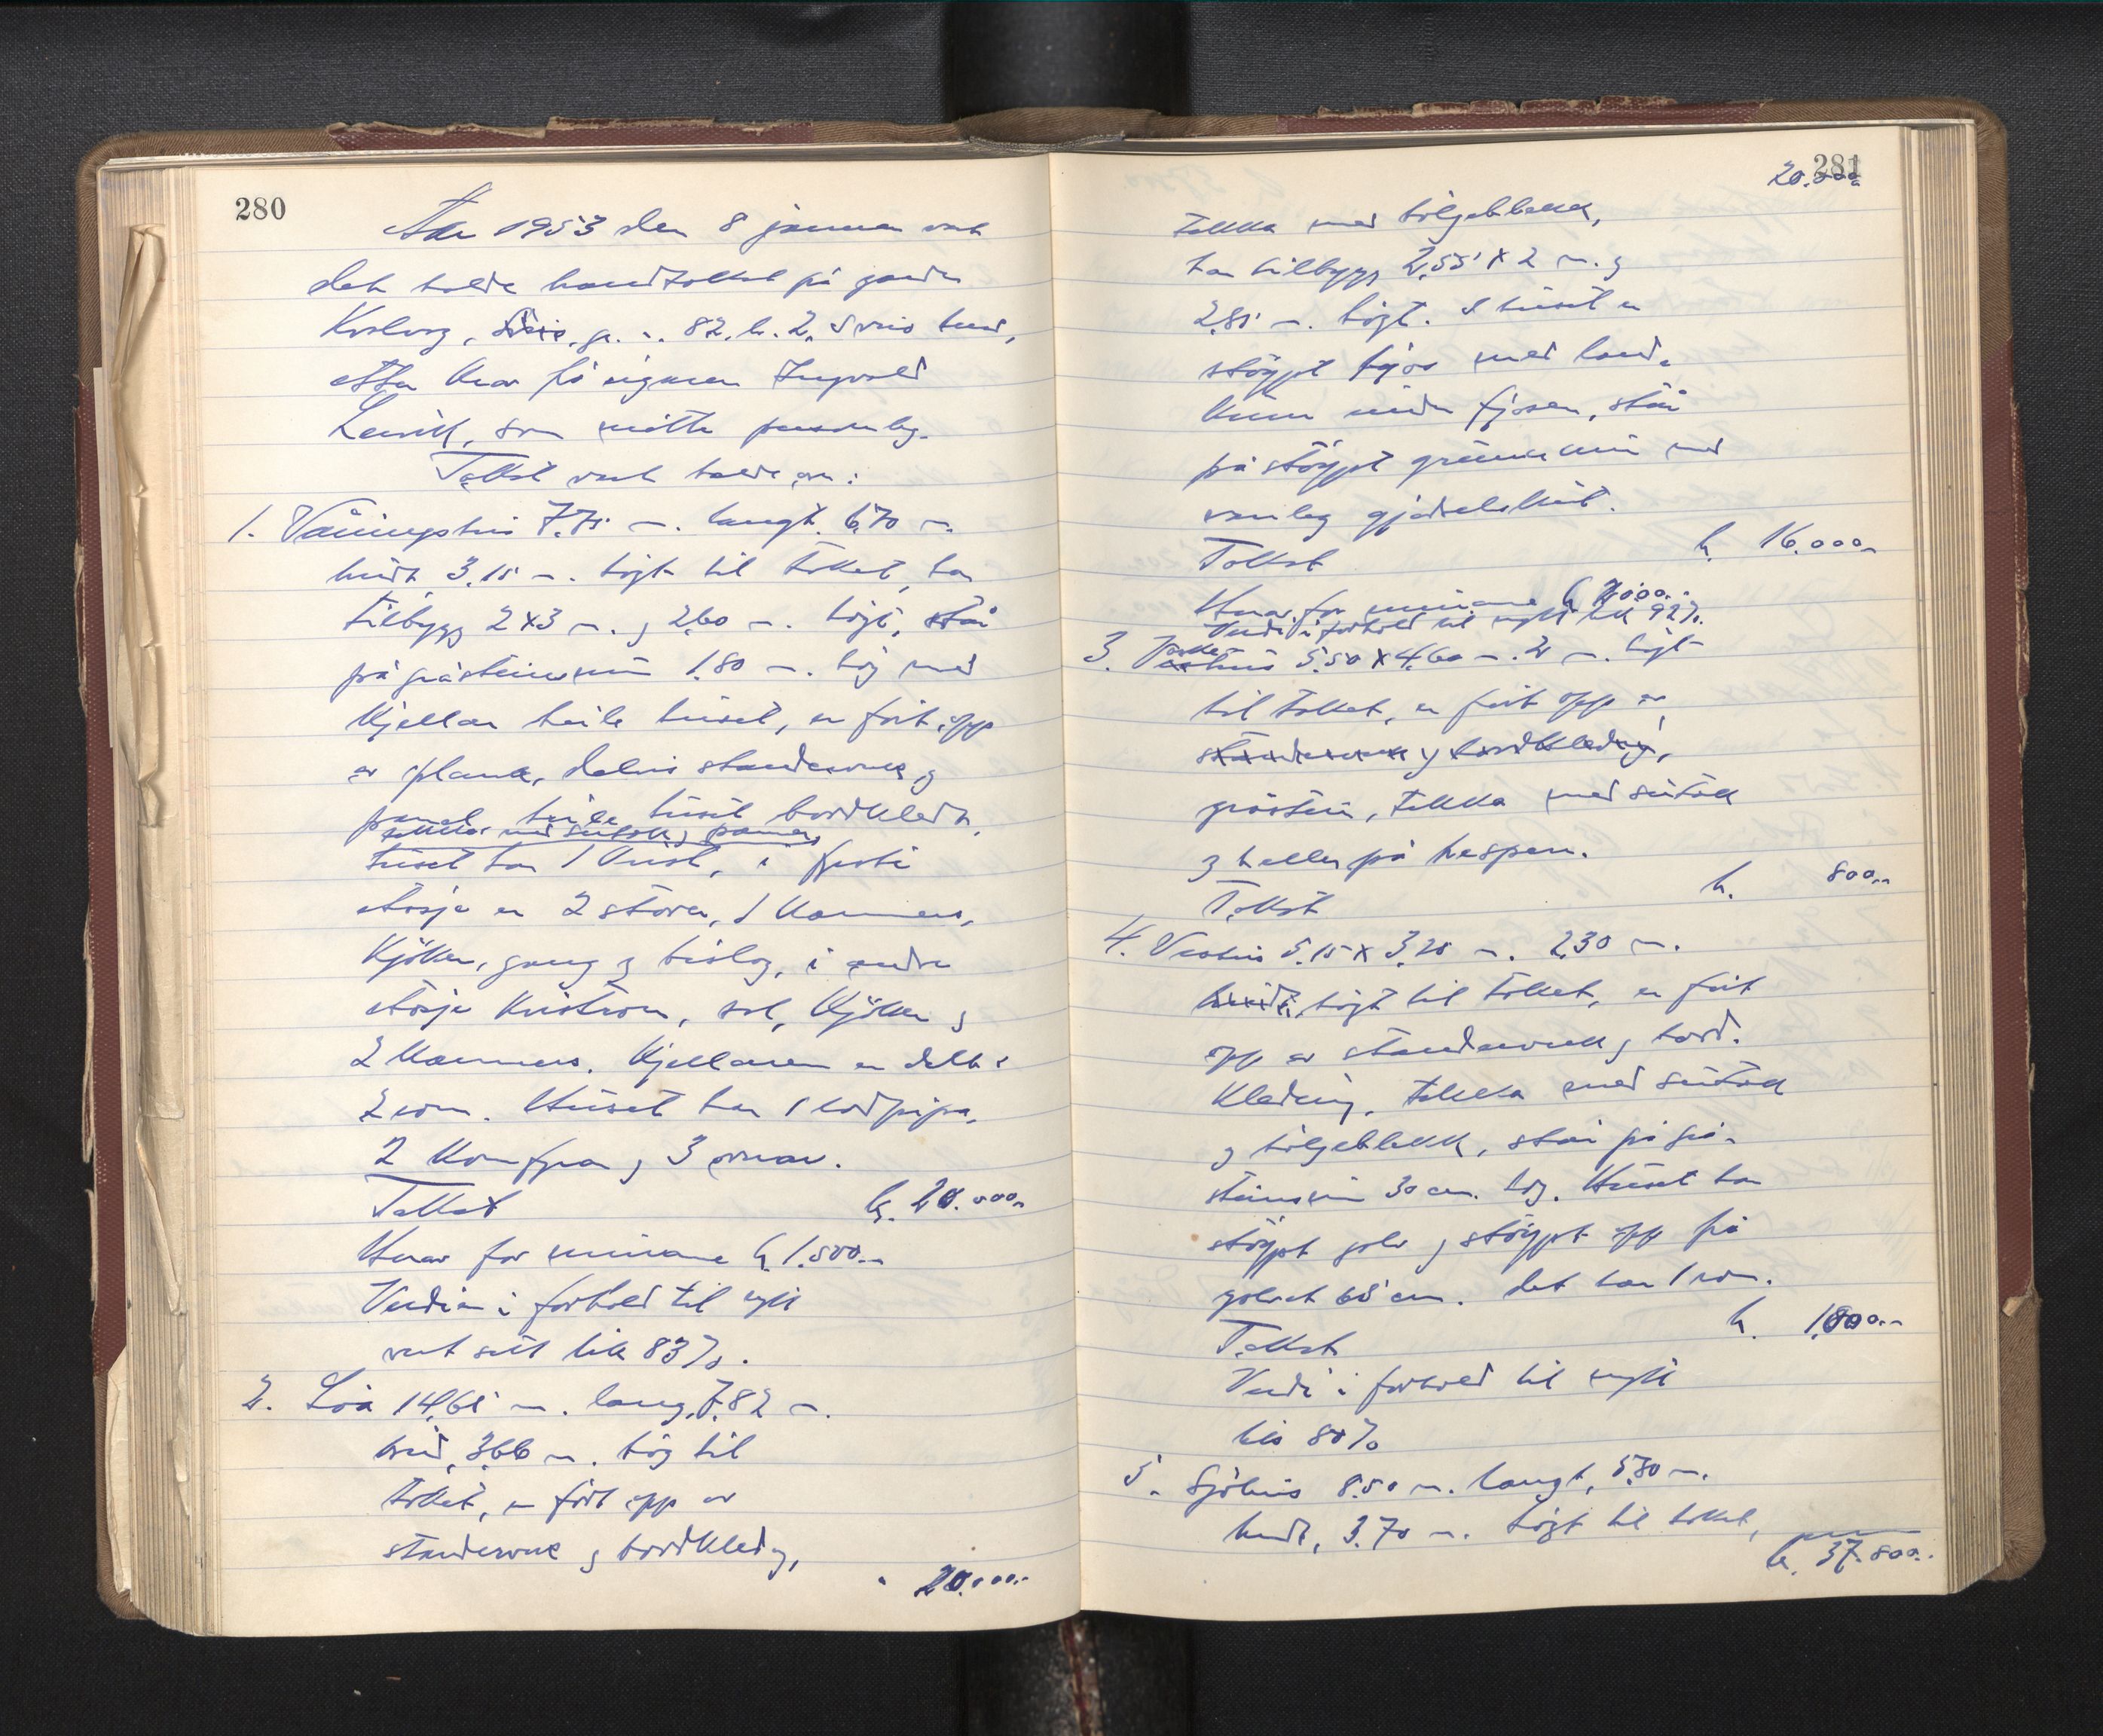 280
År 1953 den 8 januar vart
det halde brandtakst på garden
g. n. 82, b. 2,
etter krav frå eigaren Ingvald
som møtte personleg.
Takst vart halde over:
1. Våningshus 7,75 m. langt, 6,70 m.
breidt, 3,15 m. högt til taket, har
tilbygg 2 x 3 m. og 2,60 m. högt, står
på gråsteinsmur 1,80 m. hög med
kjellar heile huset, er fört opp
av plank, delvis standarverk og
panel, heile huset bordkledt,
tekka med skifer og panner,
huset har 1 kvist, i fyrste
etasje er 2 stover, 1 kammers,
kjöken, gang og bislag, i andre
etasje kvistrom, sal, kjöken og
2 kammers. Kjellaren er delt i
2 rom. Huset har 1 rödpipa,
2 komfyrar og 3 omnar.
Takst kr. 20.000,-
Avrav for murane kr. 1.500,-
Verdien i forhold til nytt
vart sett lik 83%.
2. Löa 14,65 m. lang, 7,82 m.
breid, 3,66 m. hög til
taket, er fört opp av
standarverk og bordkledng,
20.000,-
281
20.000
tekka med bölgeblekk,
har tilbygg 2,55 x 2 m. og
2,85 m. högt. I huset er
stöypt fjös med land-
kum under fjosen, står
på stöypt grunnmur med
vanleg gjödselshus.
Takst kr. 16.000,-
Avrav for murane kr. 2000,-
Verdi i forhold til nytt lik 92%.
3. 5,50 x 4,60 m. 2 m. högt
til taket, er fört opp av
standarverk og bordkledng,
gråstein, tekka med
og heller på
Takst kr. 800,-
4. Vedhus 5,15 x 3,25 m. 2,30 m.
breidt, högt til taket, er fört
opp av standarverk og bord-
kledning, tekka med
og bölgeblekk, står på grå-
steinsmur 30 cm. hög. Huset har
stöypt golv og stöypt opp frå
golvet 65 cm. Det har 1 rom.
Takst kr. 1.000,-
Verdi i forhold til nytt
lik 80%
5. Sjöhus 8,50 m. langt, 5,80 m.
breidt, 3,70 m. högt til taket,
kr. 37.800,-